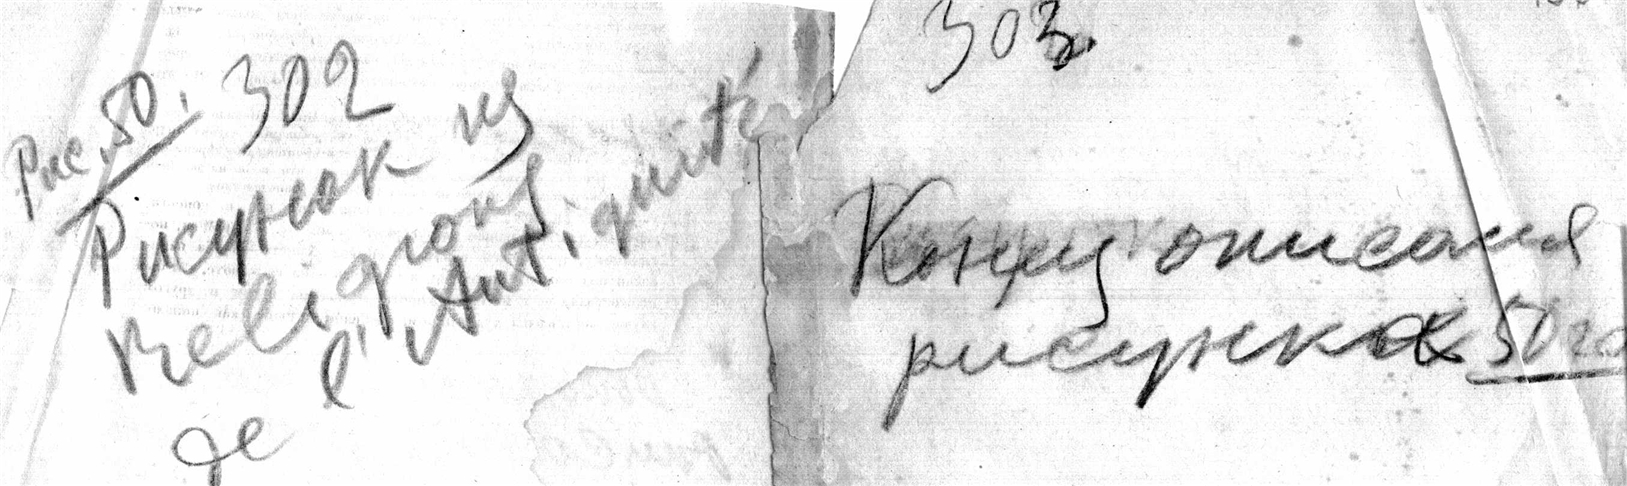 Рис. 50. 302
Рисунок из
Religions
de l'Antiquité
303.
Конец описания
рисунка 50го